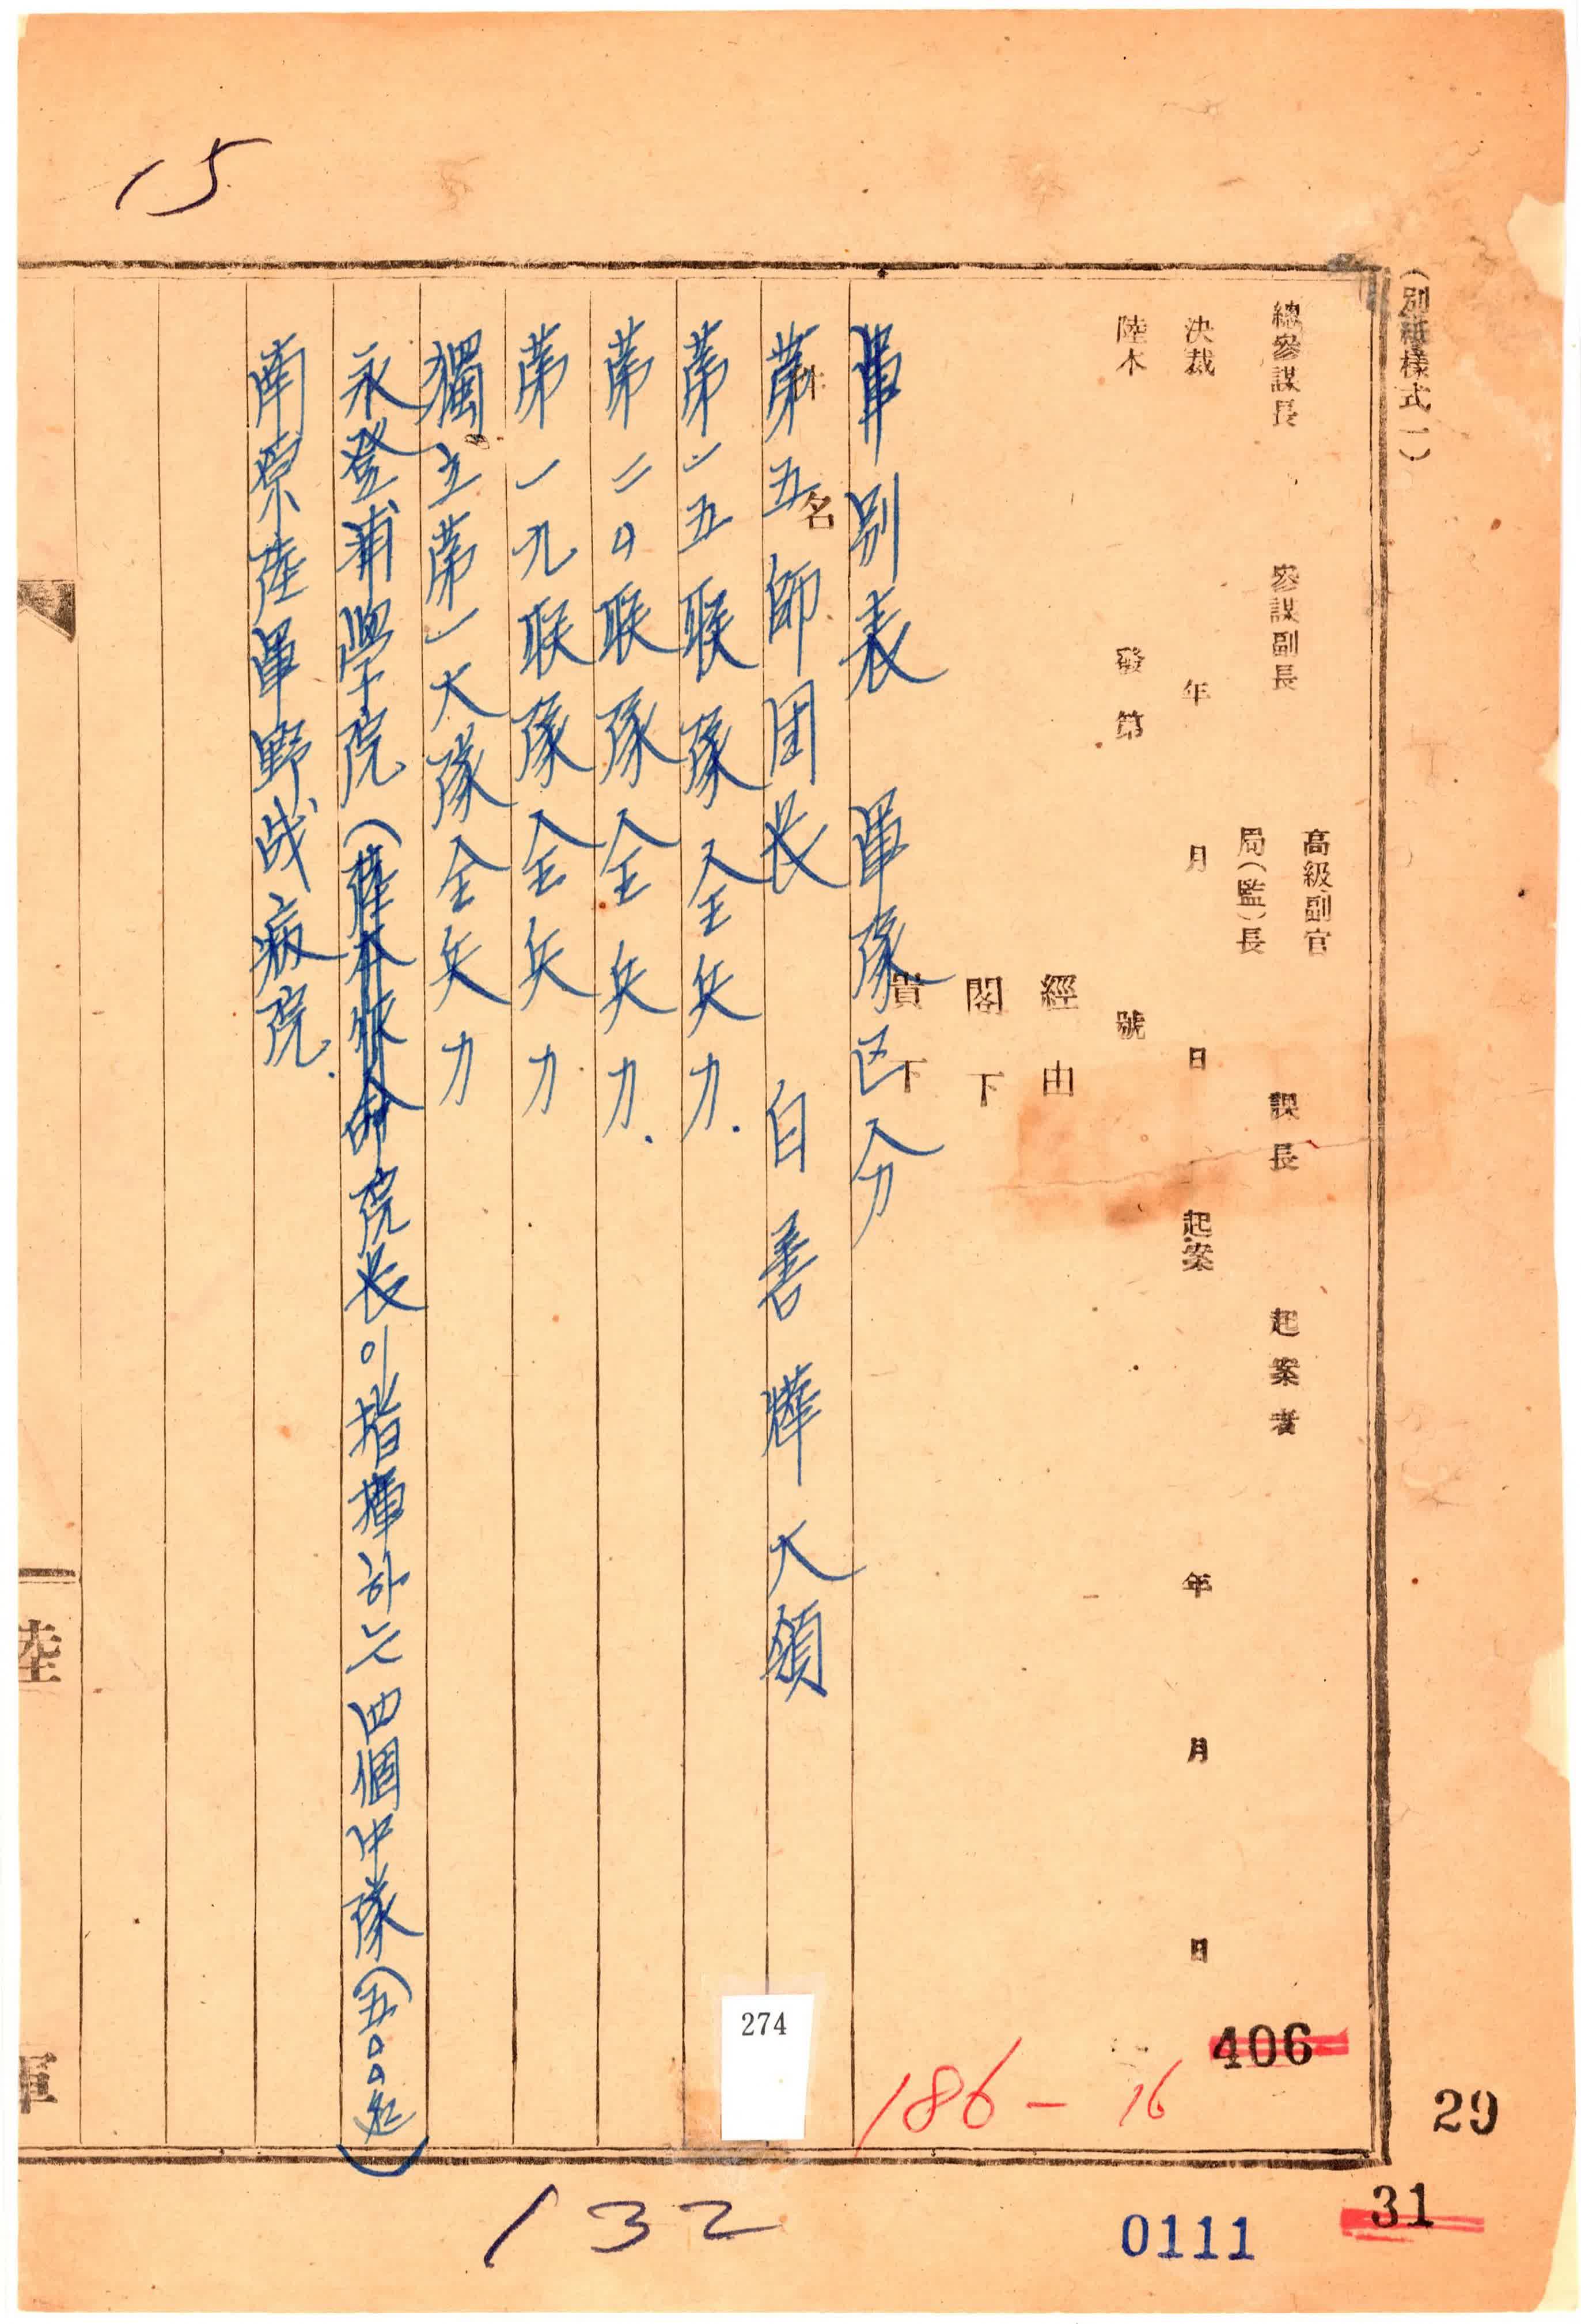 15
(別紙樣式一)
總參謀長 參謀副長 高級副官 局(監)長 課長 起案者
決裁 年 月 日 起案 年 月 日
陸本 發第 號
經由
閣下
貴下
件名
軍別表 軍隊区分
第五師団长 白善燁大領
第一五聯隊全兵力.
第二〇聯隊全兵力.
第一九聯隊全兵力
獨立第一大隊全兵力
永登浦學院 院长이指揮하는四個中隊(五〇〇名)
南原陸軍野战病院.
陸 軍
274
406
186-16
29
31
0111
132